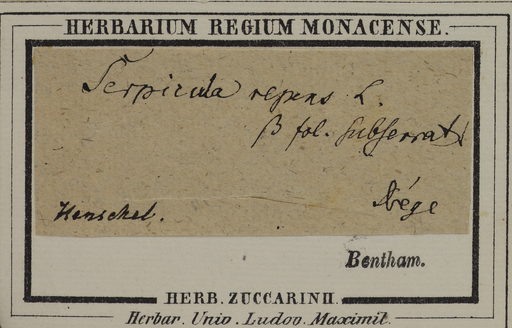 HERBARIUM REGIUM MONACENSE.
Serpicula repens L.
β fol. subserrat
Henschel.
Bentham.
HERB. ZUCCARINII.
Herbar. Univ. Ludov. Maximil.